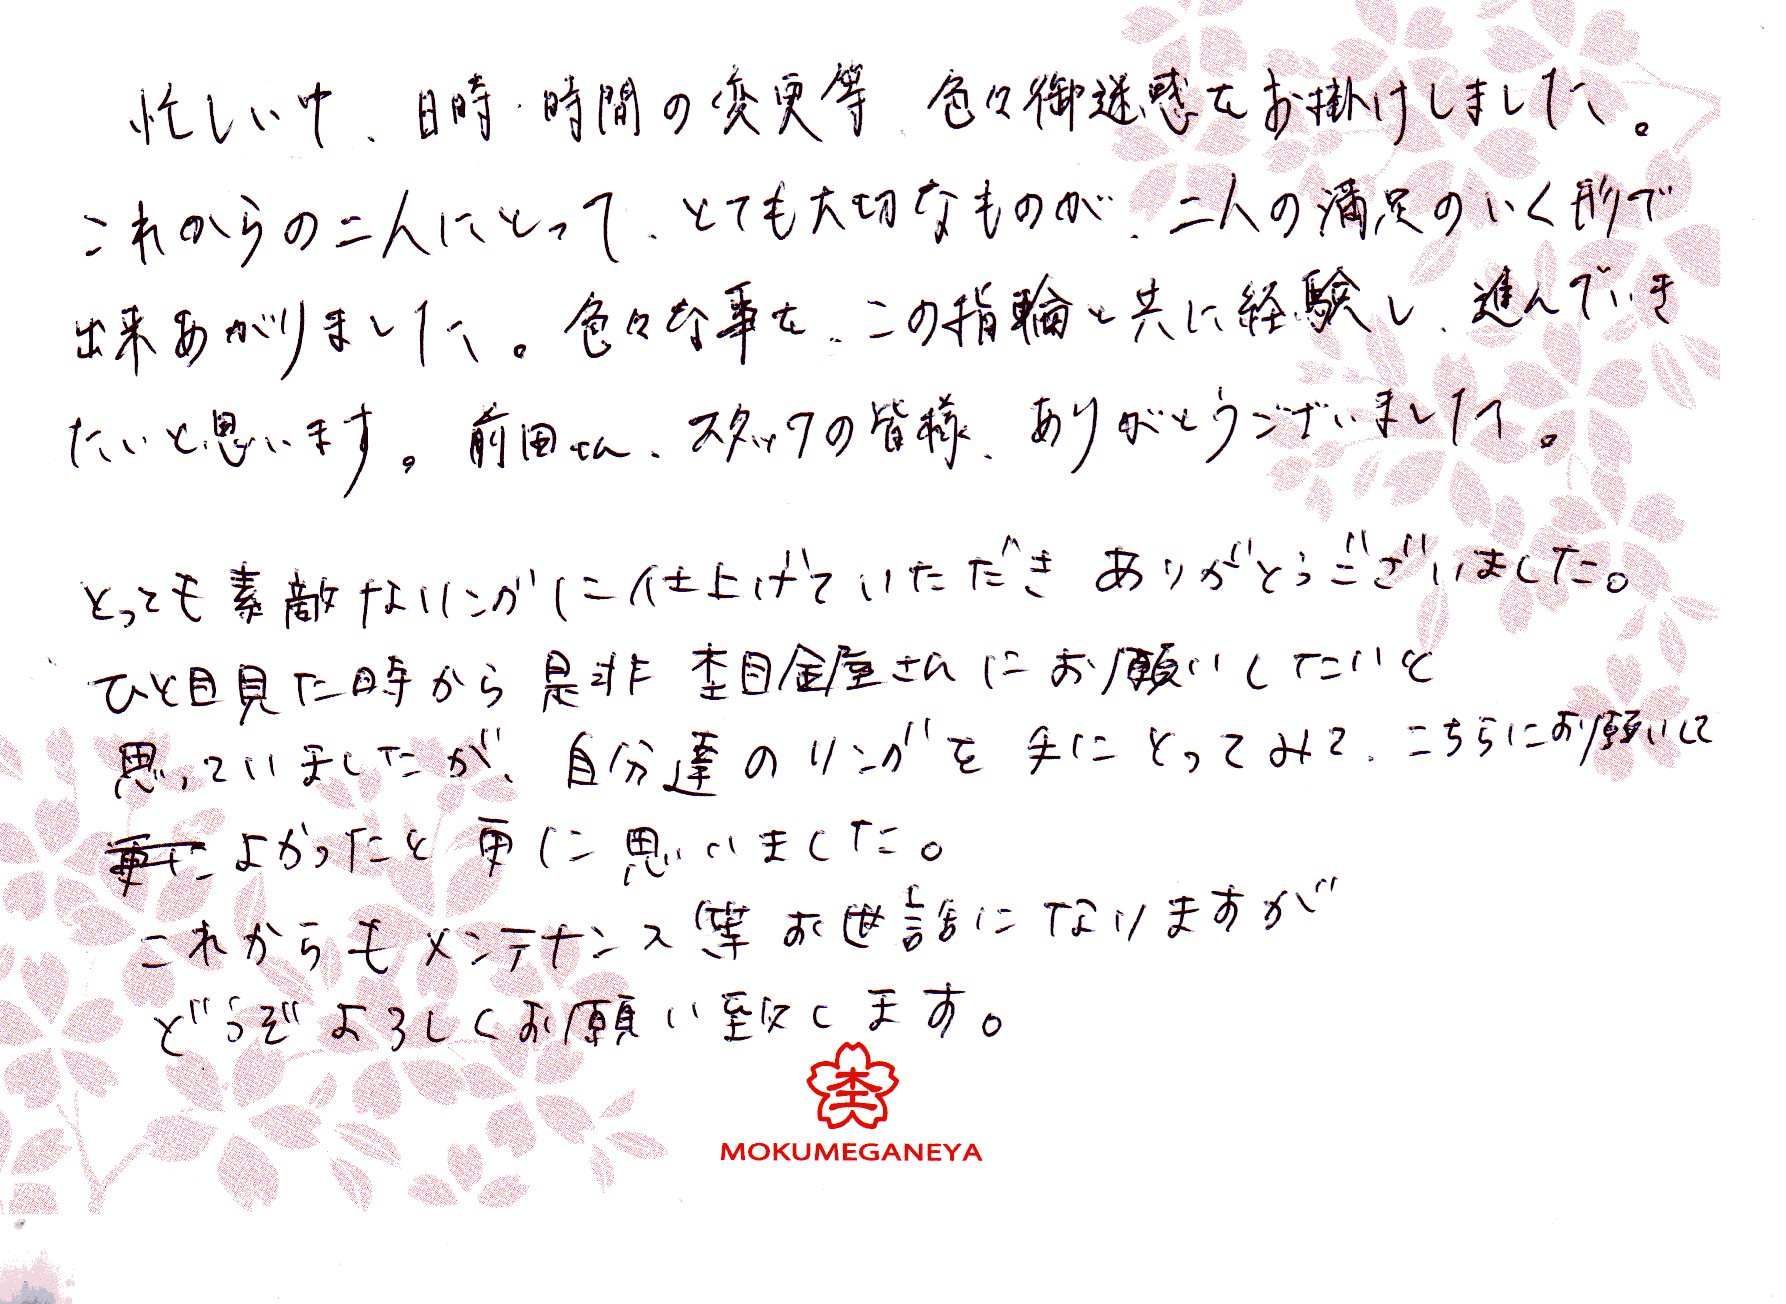 忙しい中、日時・時間の変更等、色々御迷惑をお掛けしました。
これからの二人にとって、とても大切なものが、二人の満足のいく形で
出来あがりました。色々な事を、この指輪と共に経験し、進んでいき
たいと思います。前田さん、スタッフの皆様、ありがとうございました。
とっても素敵なリングに仕上げていただき ありがとうございました。
ひと目見た時から 是非 杢目金屋さんにお願いしたいと
思っていましたが、自分達のリングを手にとってみて、こちらにお願いして
更に よかったと更に思いました。
これからもメンテナンス等お世話になりますが
どうぞよろしくお願い致します。
杢
MOKUMEGANEYA